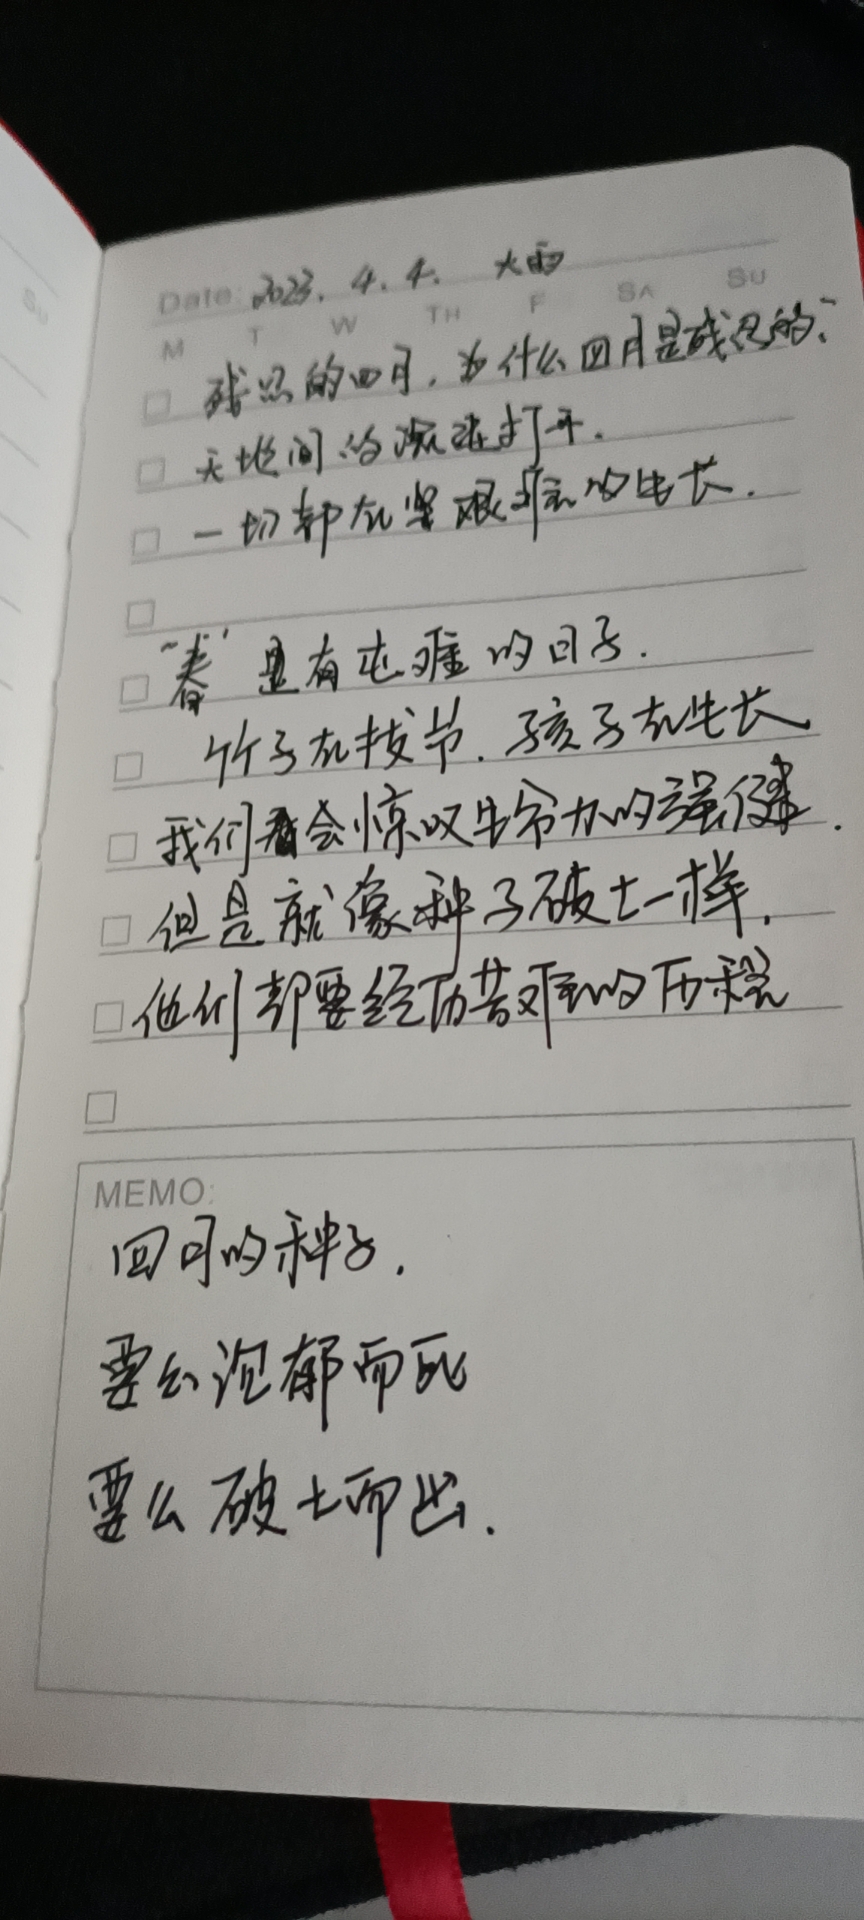 Su
Date: 2023. 4. 4. 大雨
M T W TH F SA SU
残忍的四月，为什么四月是残忍的？
天地间的 打开.
一切都在 艰难的生长.
"春"是有屯难的日子.
竹子在拔节. 孩子在生长
我们 会惊叹生命力的强健.
但是就像种子破土一样.
他们却要经历苦难的历程
MEMO:
四月的种子.
要么沉郁而死
要么破土而出.